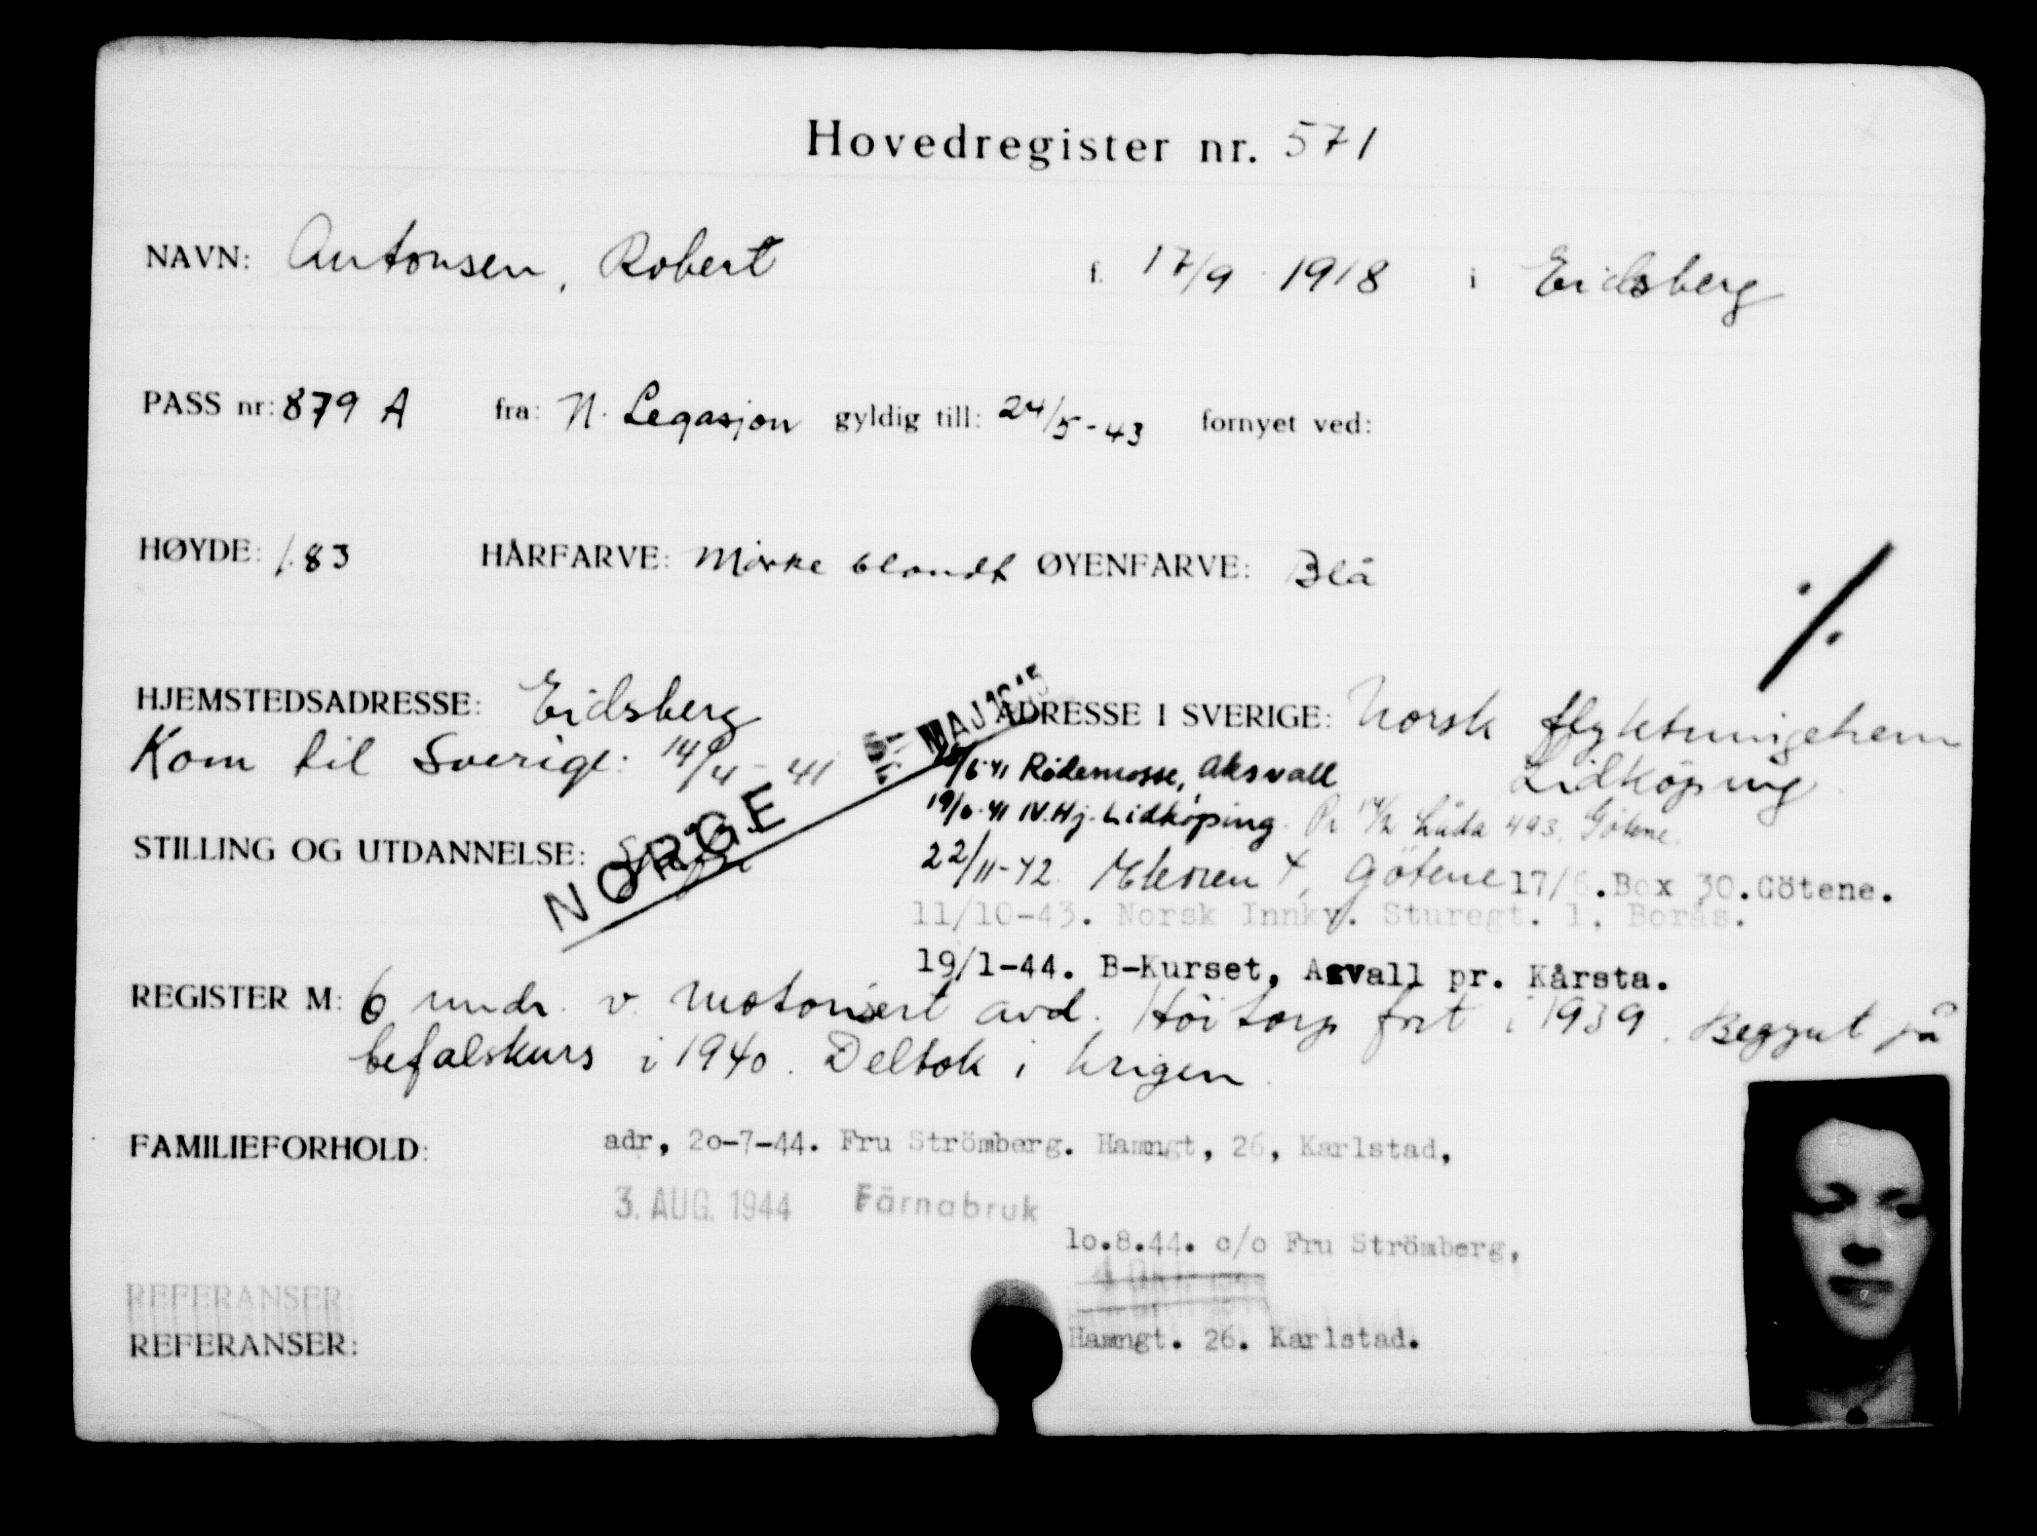 Hovedregister nr. 571
NAVN: Antonsen, Robert f. 17/9 1918 i Eidsberg
PASS nr: 879 A fra: N. Legasjon gyldig till: 24/5-43 fornyet ved:
HØYDE: 1.83 HÅRFARVE: Mörke blondt ØYENFARVE: Blå
HJEMSTEDSADRESSE: Eidsberg ADRESSE I SVERIGE: Norsk flyktningehem
MAJ 1945
Kom til Sverige: 14/4-41 Lidköping
/6-41 Rödemosse, Aksvall
19/6-41 N.Hj. Lidköping. Låda 493, Götene.
STILLING OG UTDANNELSE:
NORGE
22/11-42 4, Götene 17/6.Box 30.Götene.
11/10-43. Norsk Innkv. Sturegt. 1, Borås.
19/1-44. B-Kurset, Axvall pr. Kårsta.
REGISTER M: 6 undr. v. Motorisert avd. Höitorp fort i 1939. Beggynt på
befalskurs i 1940. Deltok i krigen.
FAMILIEFORHOLD: adr, 2o-7-44. Fru Strömberg. Hamngt, 26, Karlstad,
3. AUG. 1944 Färnabruk
lo.8.44. c/o Fru Strömberg,
REFERANSER
REFERANSER: Hamngt. 26. Karlstad.